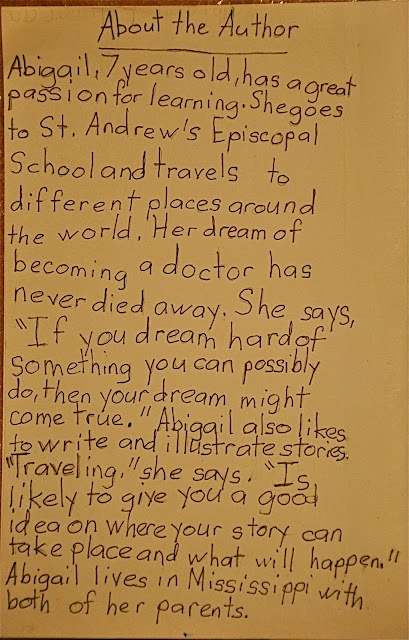 About the Author
Abigail, 7 years old, has a great
passion for learning. She goes
to St. Andrew's Episcopal
School and travels to
different places around
the world. Her dream of
becoming a doctor has
never died away. She says,
"If you dream hard of
something you can possibly
do, then your dream might
come true." Abigail also likes
to write and illustrate stories.
"Traveling," she says. "Is
likely to give you a good
idea on where your story can
take place and what will happen."
Abigail lives in Mississippi with
both of her parents.